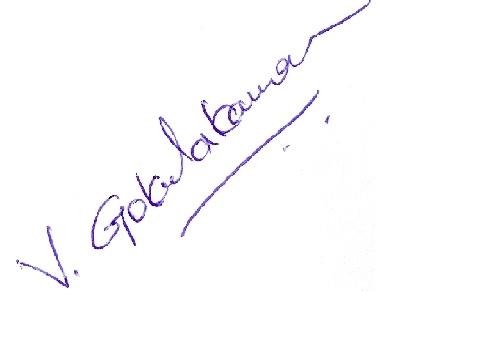 V. Gokulakannan